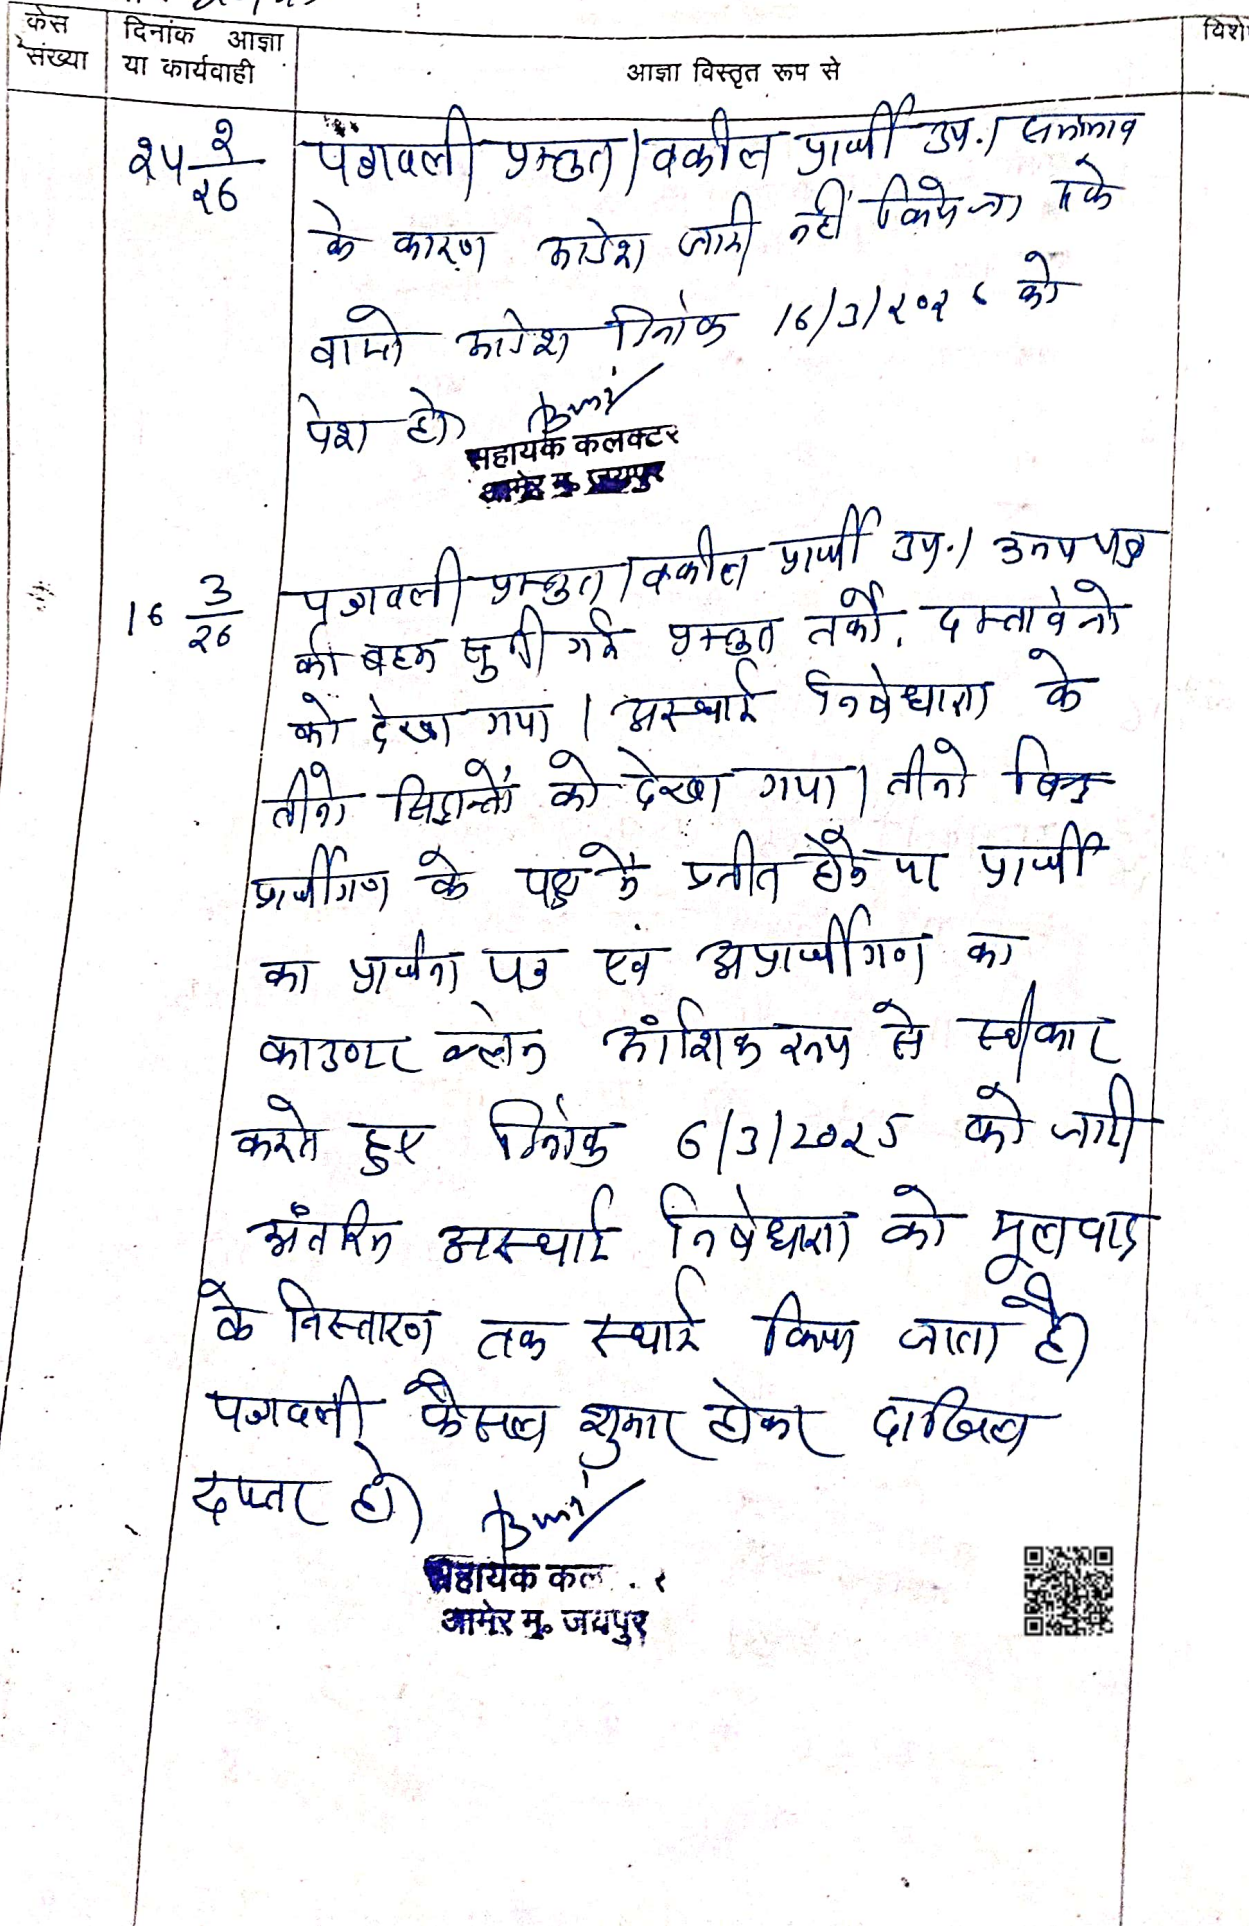 केस संख्या
दिनांक आज्ञा या कार्यवाही
आज्ञा विस्तृत रूप से
विशे
२५ २/२६
पत्रावली प्रस्तुत। वकील प्रार्थी उप.। समयाभाव
के कारण आदेश जारी नहीं किये जा सके
वास्ते आदेश दिनांक 16/3/२०२६ को
पेश हो।
सहायक कलक्टर
आमेर मु. जयपुर
16 3/26
पत्रावली प्रस्तुत। वकील प्रार्थी उप.। उभय पक्ष
की बहस सुनी गई प्रस्तुत तर्को, दस्तावेजो
को देखा गया। अस्थाई निषेधाज्ञा के
तीनो सिद्धान्तों को देखा गया। तीनो बिन्दु
प्रार्थीगण के पक्ष में प्रतीत होने पर प्रार्थी
का प्रार्थना पत्र एवं अप्रार्थीगण का
काउण्टर क्लेम आंशिक रूप से स्वीकार
करते हुए दिनांक 6/3/2025 को जारी
अंतरिम अस्थाई निषेधाज्ञा को मूलवाद
के निस्तारण तक स्थाई किया जाता है।
पत्रावली फैसल शुमार होकर दाखिल
दफ्तर हो।
सहायक कल
आमेर मु. जयपुर